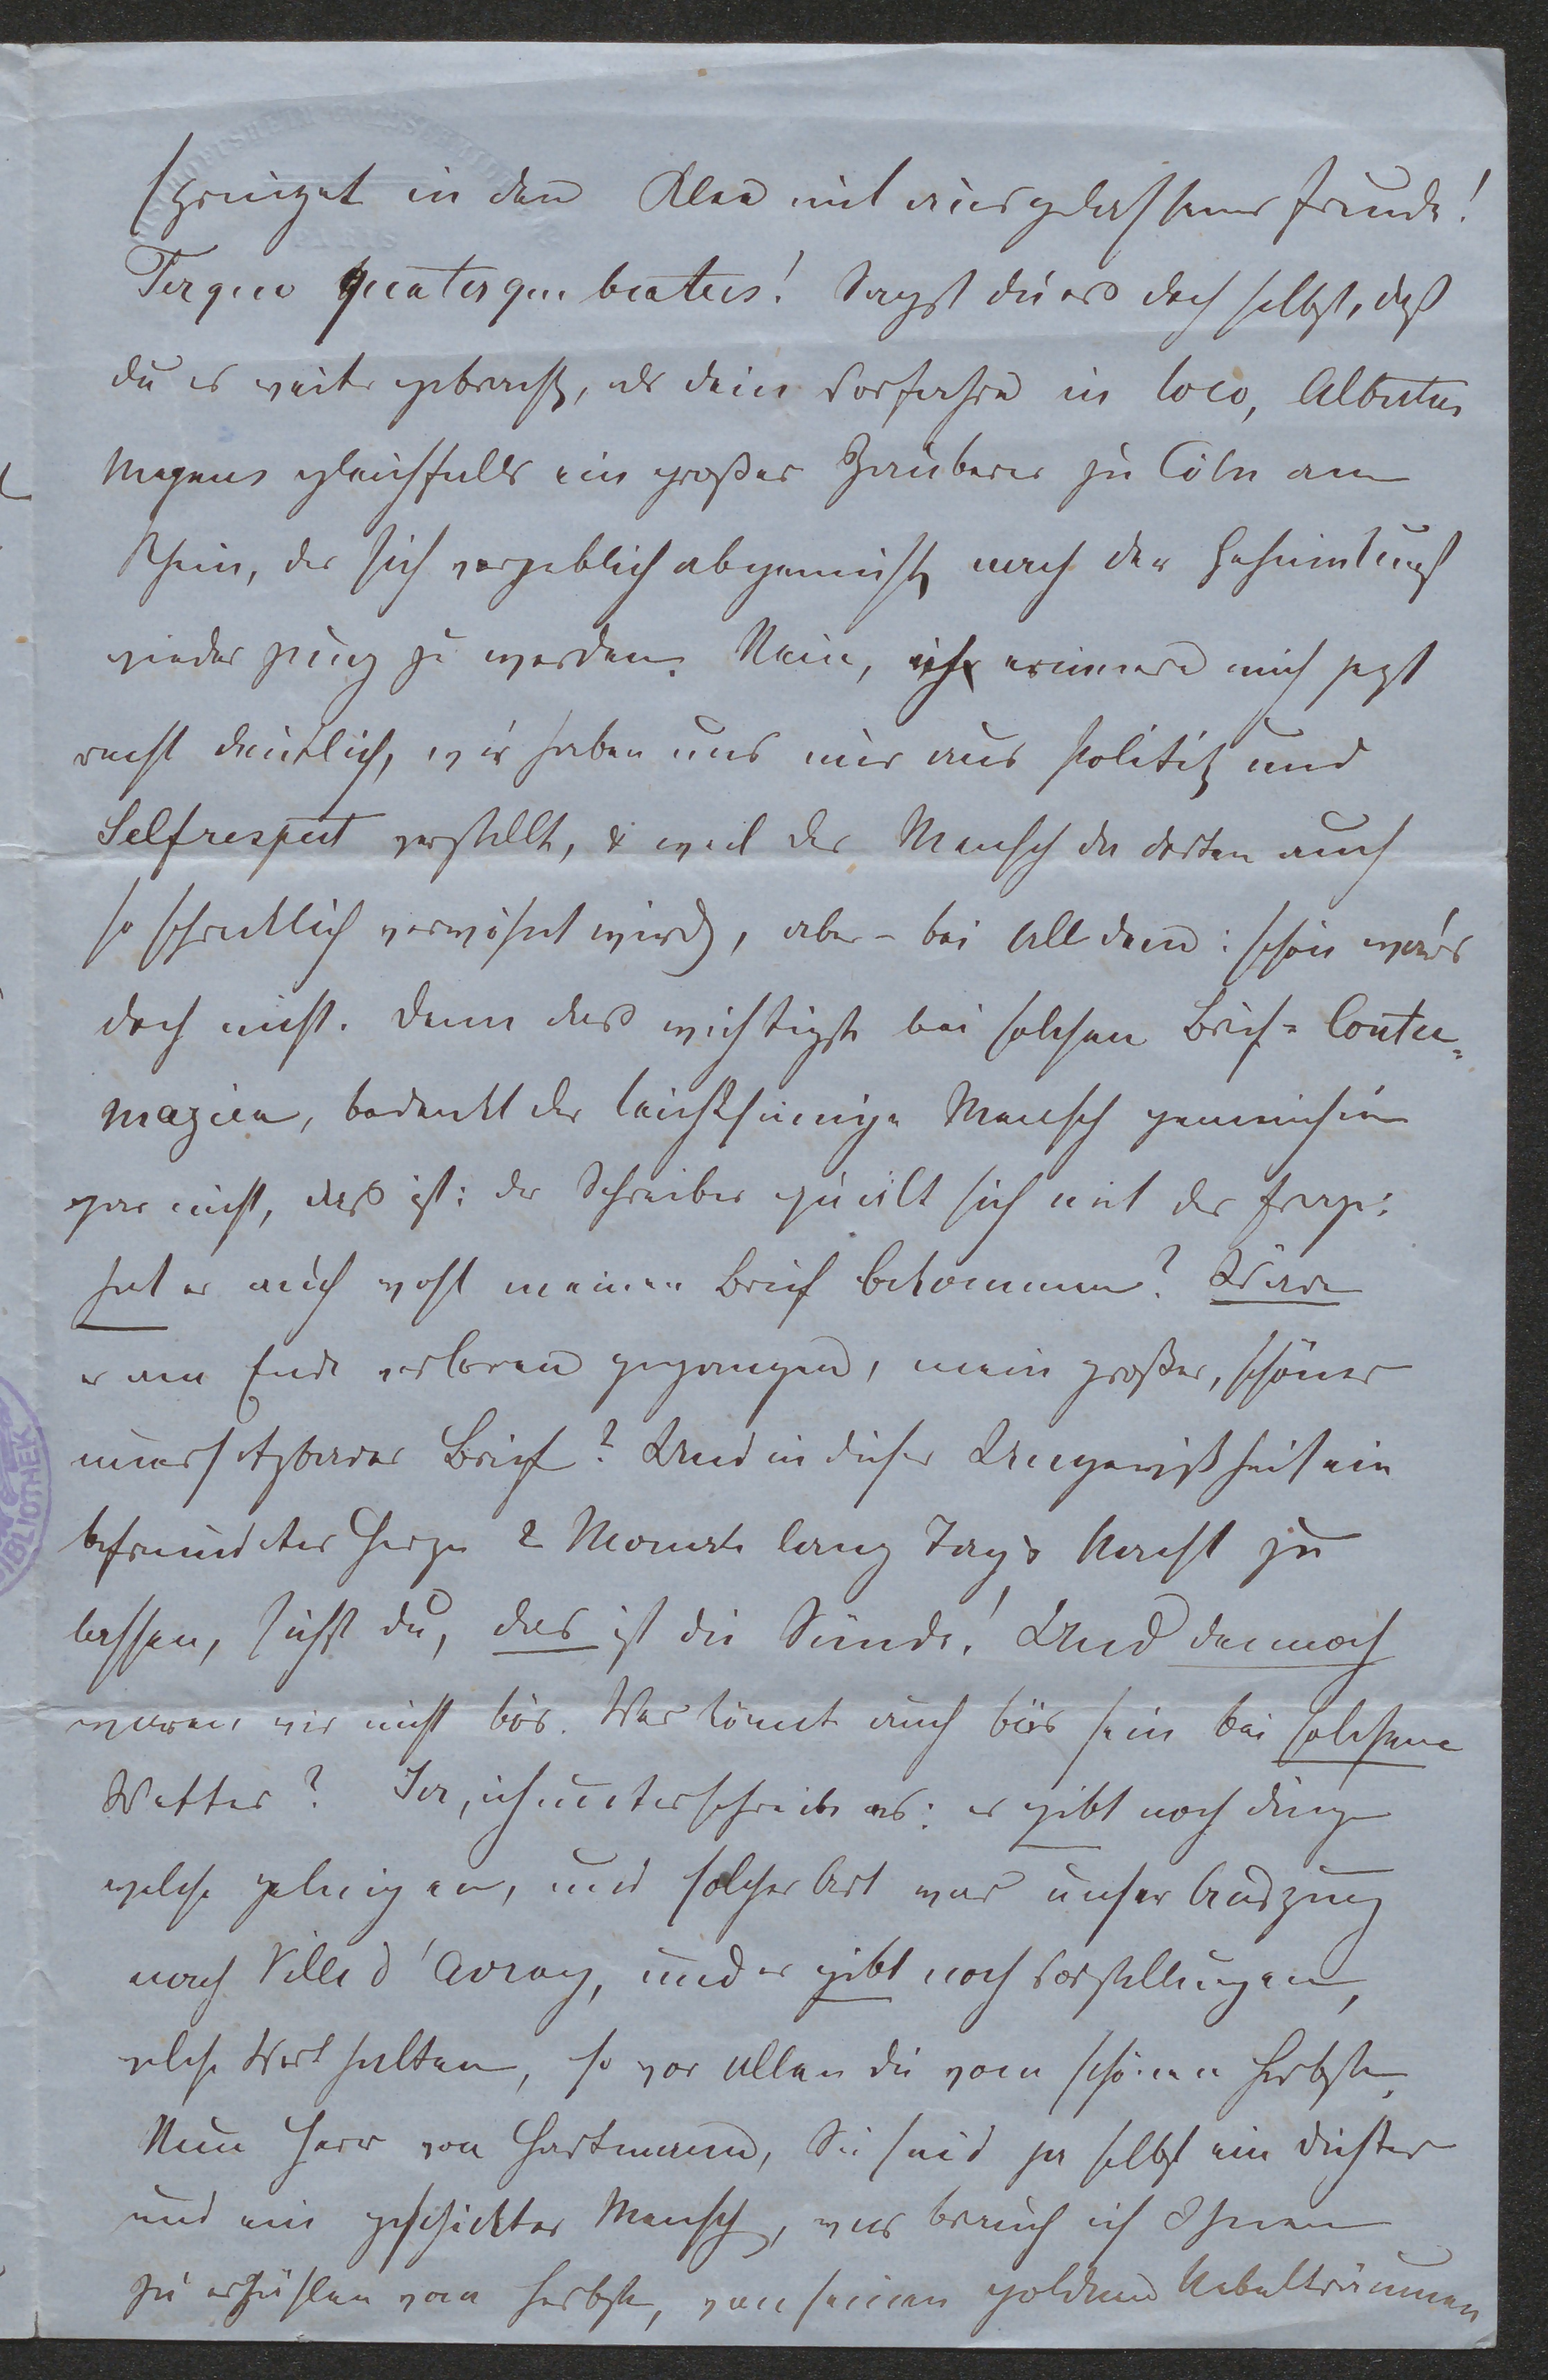 springet in den Klee mit ausgelassener Freude!
Terque quaterque beatus! Sagst du es doch selbst, daß
du es weiter gebracht, als dein Vorfahre in loco, Albertus
Magnus gleichfalls ein großer Zauberer zu Cöln am
Rhein, der sich vergeblich abgemüht nach der Geheimkunst
wieder jung zu werden. Nein, ich erinnere mich jezt
recht deutlich, wir haben uns nur aus Politik und
Selfrespect verstellt, & weil der Mensch da dorten auch
so schrecklich verwöhnt wird, aber – bei all dem: schön war's
doch nicht. Denn das wichtigste bei solchen Brief-Contu-
mazien, bedenkt der leichtsinnige Mensch gemeinhin
gar nicht, das ist: der Schreiber quält sich mit der Frage:
hat er auch wohl meinen Brief bekommen? Wäre
er am Ende verloren gegangen, mein großer, schöner
unersetzbarer Brief? Und in dieser Ungewißheit ein
befreundetes Herze 2 Monate lang Tag & Nacht zu
lassen, siehst du, das ist die Sünde! Und dennoch
waren wir nicht bös. Wer könnt auch bös sein bei solchem
Wetter? Ja, ich unterschreib es: es gibt noch Dinge
welche gelingen, und solcher Art war unser Auszug
nach Ville d'Avray, und es gibt noch Vorstellungen,
welche Wort halten, so vor allen die vom schönen Herbste.
Nun Herr von Hartmann, Sie seid ja selbst ein Dichter
und ein geschickter Mensch, was brauch ich Ihnen
zu erzählen vom Herbste, von seinen goldnen Nebelträumen
BIBLIOTHEK